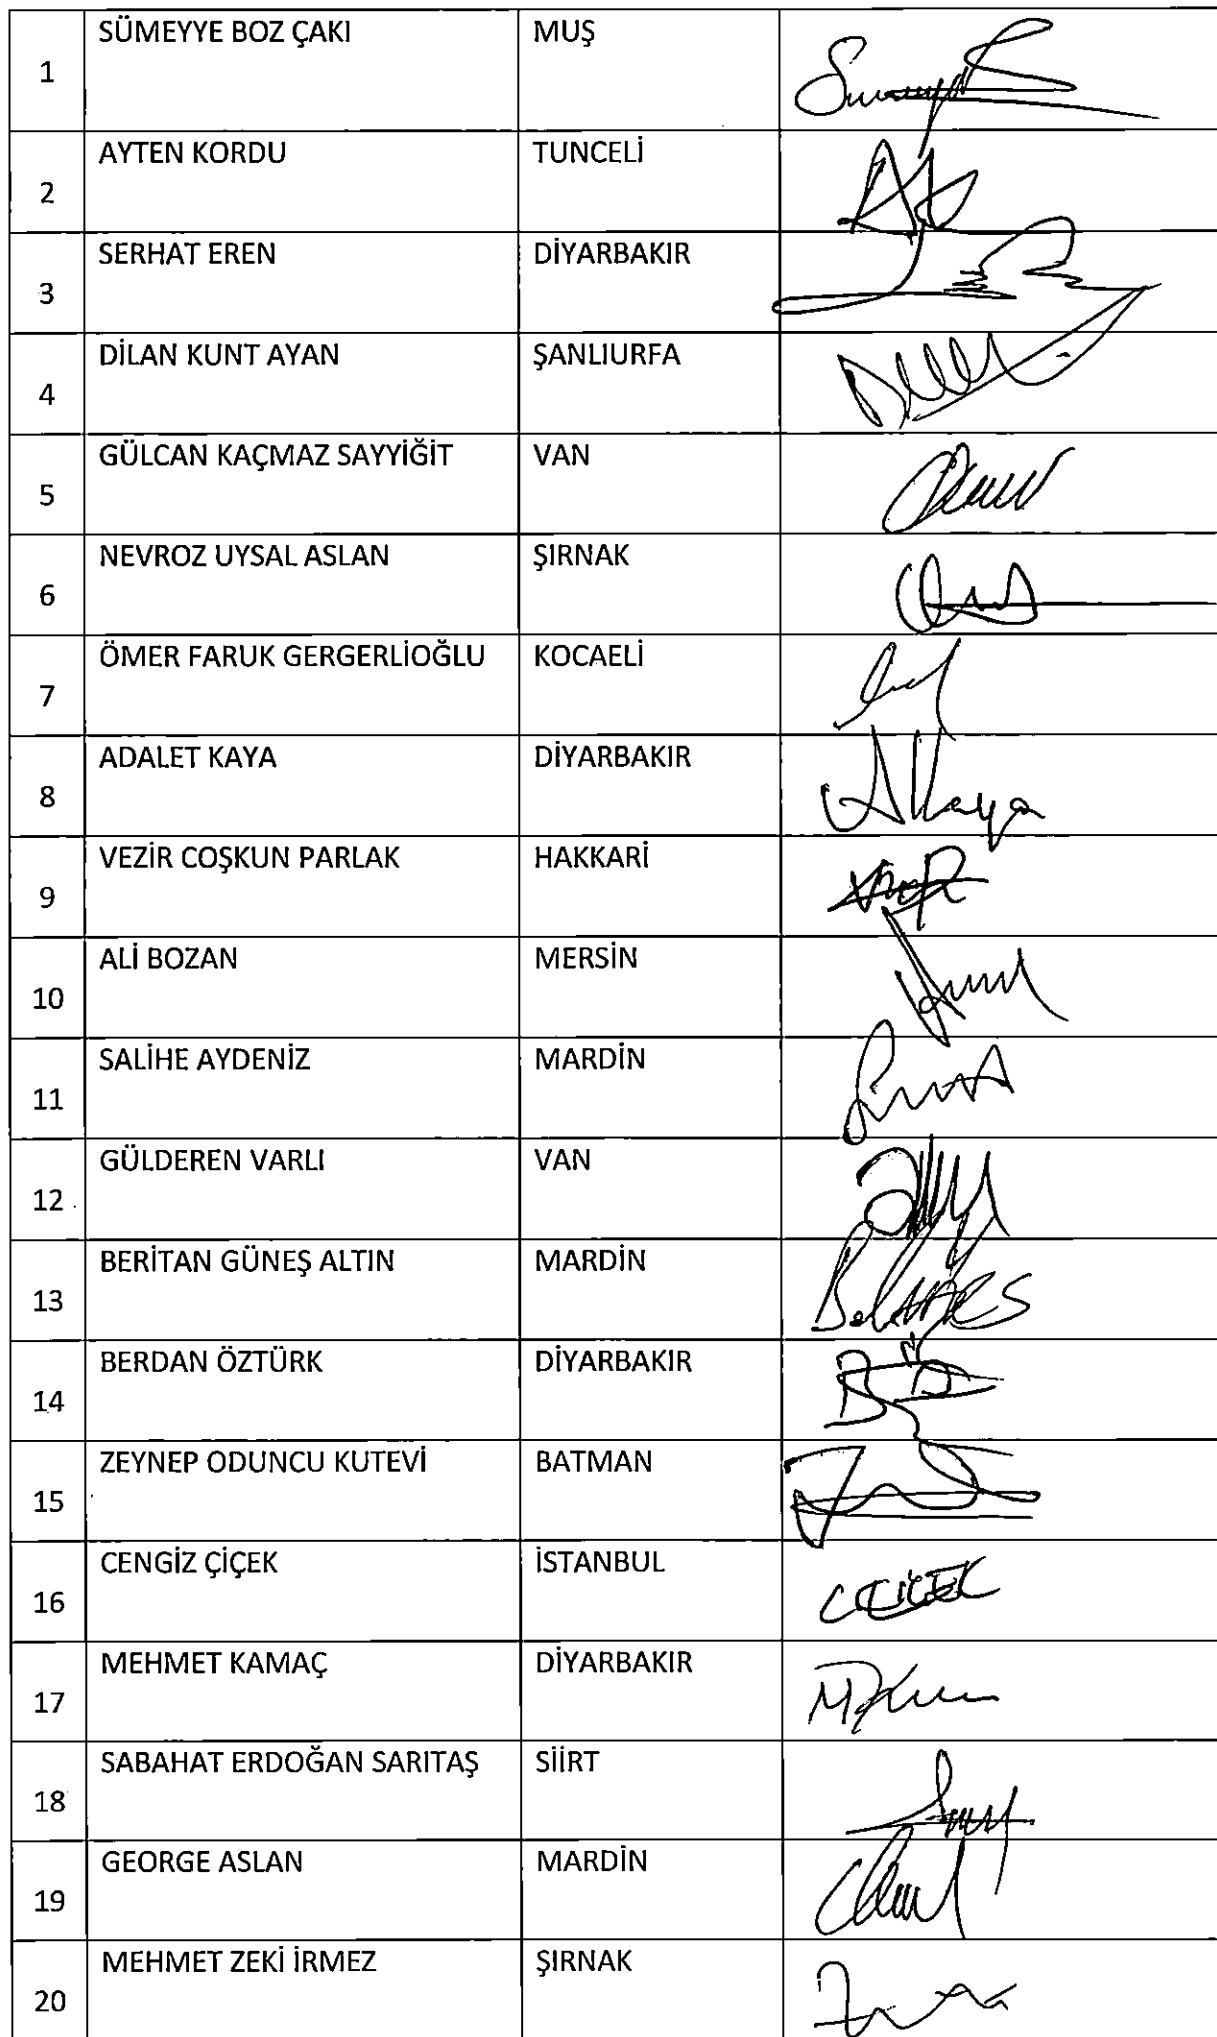 1 SÜMEYYE BOZ ÇAKI MUŞ
2 AYTEN KORDU TUNCELİ
3 SERHAT EREN DİYARBAKIR
4 DİLAN KUNT AYAN ŞANLIURFA
5 GÜLCAN KAÇMAZ SAYYİĞİT VAN
6 NEVROZ UYSAL ASLAN ŞIRNAK
7 ÖMER FARUK GERGERLİOĞLU KOCAELİ
8 ADALET KAYA DİYARBAKIR
9 VEZİR COŞKUN PARLAK HAKKARİ
10 ALİ BOZAN MERSİN
11 SALİHE AYDENİZ MARDİN
12 GÜLDEREN VARLI VAN
13 BERİTAN GÜNEŞ ALTIN MARDİN
14 BERDAN ÖZTÜRK DİYARBAKIR
15 ZEYNEP ODUNCU KUTEVİ BATMAN
16 CENGİZ ÇİÇEK İSTANBUL
17 MEHMET KAMAÇ DİYARBAKIR
18 SABAHAT ERDOĞAN SARITAŞ SİİRT
19 GEORGE ASLAN MARDİN
20 MEHMET ZEKİ İRMEZ ŞIRNAK